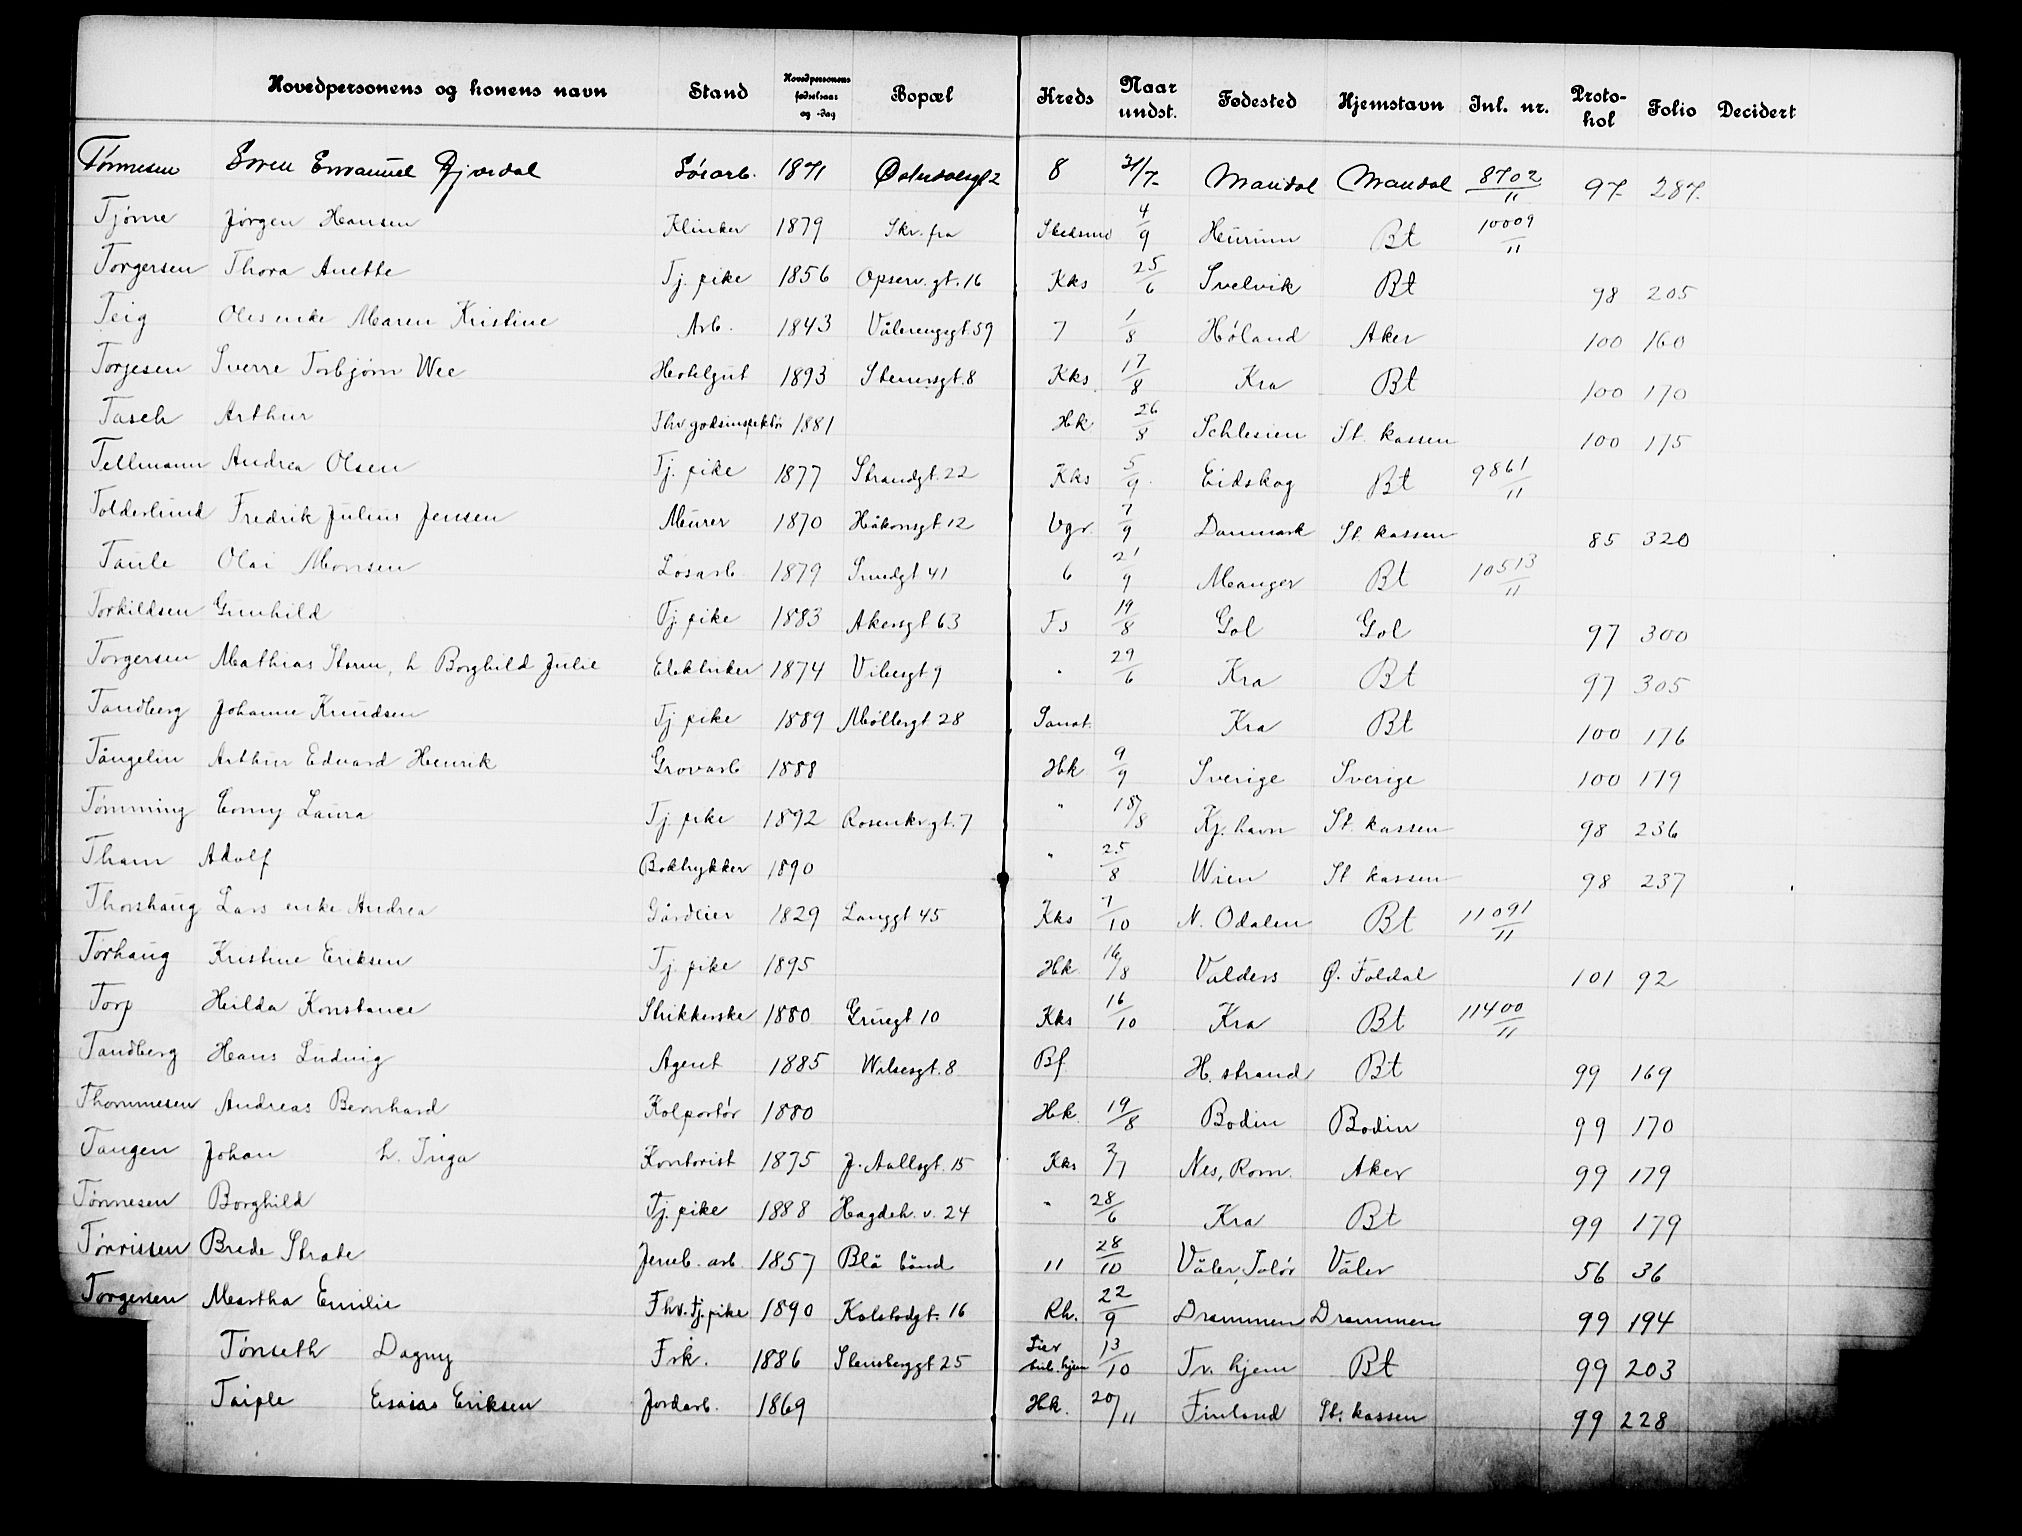 Hovedpersonens og konens navn Stand Hovedpersonens fødselsaar og -dag Bopæl Kreds Naar undst. Fødested Hjemstavn Inl. nr. Protokol Folio Decidert
Tønnesen Soren Emanuel Løsarb. 1871 8 21/7 Mandal Mandal 8702/11 97 287
Tjøme Jørgen Hansen Klinker 1879 Skr. fra Skedsmo 4/9 Hurum Bt 10009/11
Torgersen Thora Anette Tj. pike 1856 Opserv. gt. 16 Kks 25/6 Svelvik Bt 98 205
Teig Oles enke Maren Kristine Arb. 1843 Vålerengsgt 59 7 1/8 Høland Aker 100 160
Torjesen Sverre Torbjørn Wee Hotelgut 1893 Stenersgt. 8 Kks 17/8 Kra Bt 100 170
Tasch Arthur Fhv godsinspektør 1881 Hk 26/8 Schlesien St. kassen 100 175
Tellmann Andrea Olsen Tj. pike 1877 Strandgt. 22 Kks 5/9 Eidskog Bt 9861/11
Tolderlund Fredrik Julius Jensen Murer 1870 Håkonsgt 12 Vgr. 7/9 Danmark St. kassen 85 320
Taule Olai Monsen Løsarb 1879 Sundgt 41 6 21/9 Manger Bt 10513/11
Torkildsen Gunhild Tj. pike 1883 Akersgt 63 Fs 19/8 Gol Gol 97 300
Torgersen Mathias Storm, h Borghild Julie Elektriker 1874 Vibesgt 9 " 29/6 Kra Bt 97 305
Tandberg Johanne Knudsen Tj pike 1889 Møllergt 28 Sanat. Kra Bt 100 176
Tångelin Arthur Edvard Henrik Grovarb 1888 Hk 9/9 Sverige Sverige 100 179
Tømming Conny Laura Tj. pike 1892 Rosenkr. gt. 7 " 18/8 Kj. havn St. kassen 98 236
Tham Adolf Boktrykker 1890 " 25/8 Wien St kassen 98 237
Thorshaug Lars enke Andrea Gårdeier 1829 Langgt 45 Kks 7/10 N. Odalen Bt 11091/11
Tørhaug Kristine Eriksen Tj. pike 1895 Hk 16/8 Valders Ø. Foldal 101 92
Torp Hilda Konstance Strikkerske 1880 Gruegt 10 Kks 16/10 Kra Bt 11400/11
Tandberg Hans Ludvig Agent 1885 Wilsesgt. 8 Bf H. strand Bt 99 169
Thommesen Andreas Bernhard Kolportør 1880 Hk 19/8 Bodin Bodin 99 170
Tangen Johan h. Inga Kontorist 1875 J. Aallsgt. 15 Kks 3/7 Nes, Rom. Aker 99 179
Tønnesen Borghild Tj. pike 1888 Hagdeh. v. 24 " 28/6 Kra Bt 99 179
Tørrissen Brede Strate Jernb. arb. 1857 Blå bånd 11 28/10 Våler, Solør Våler 56 36
Torgersen Martha Emilie Fhv. tj. pike 1890 Kolstadgt. 16 Rh. 22/9 Drammen Drammen 99 194
Tønseth Dagny Frk. 1886 Stensberggt 25 Lier tub. hjem 13/10 Tr. hjem Bt 99 203
Taiple Esaias Eriksen Jordarb. 1869 Hk. 20/11 Finland St. kassen 99 228